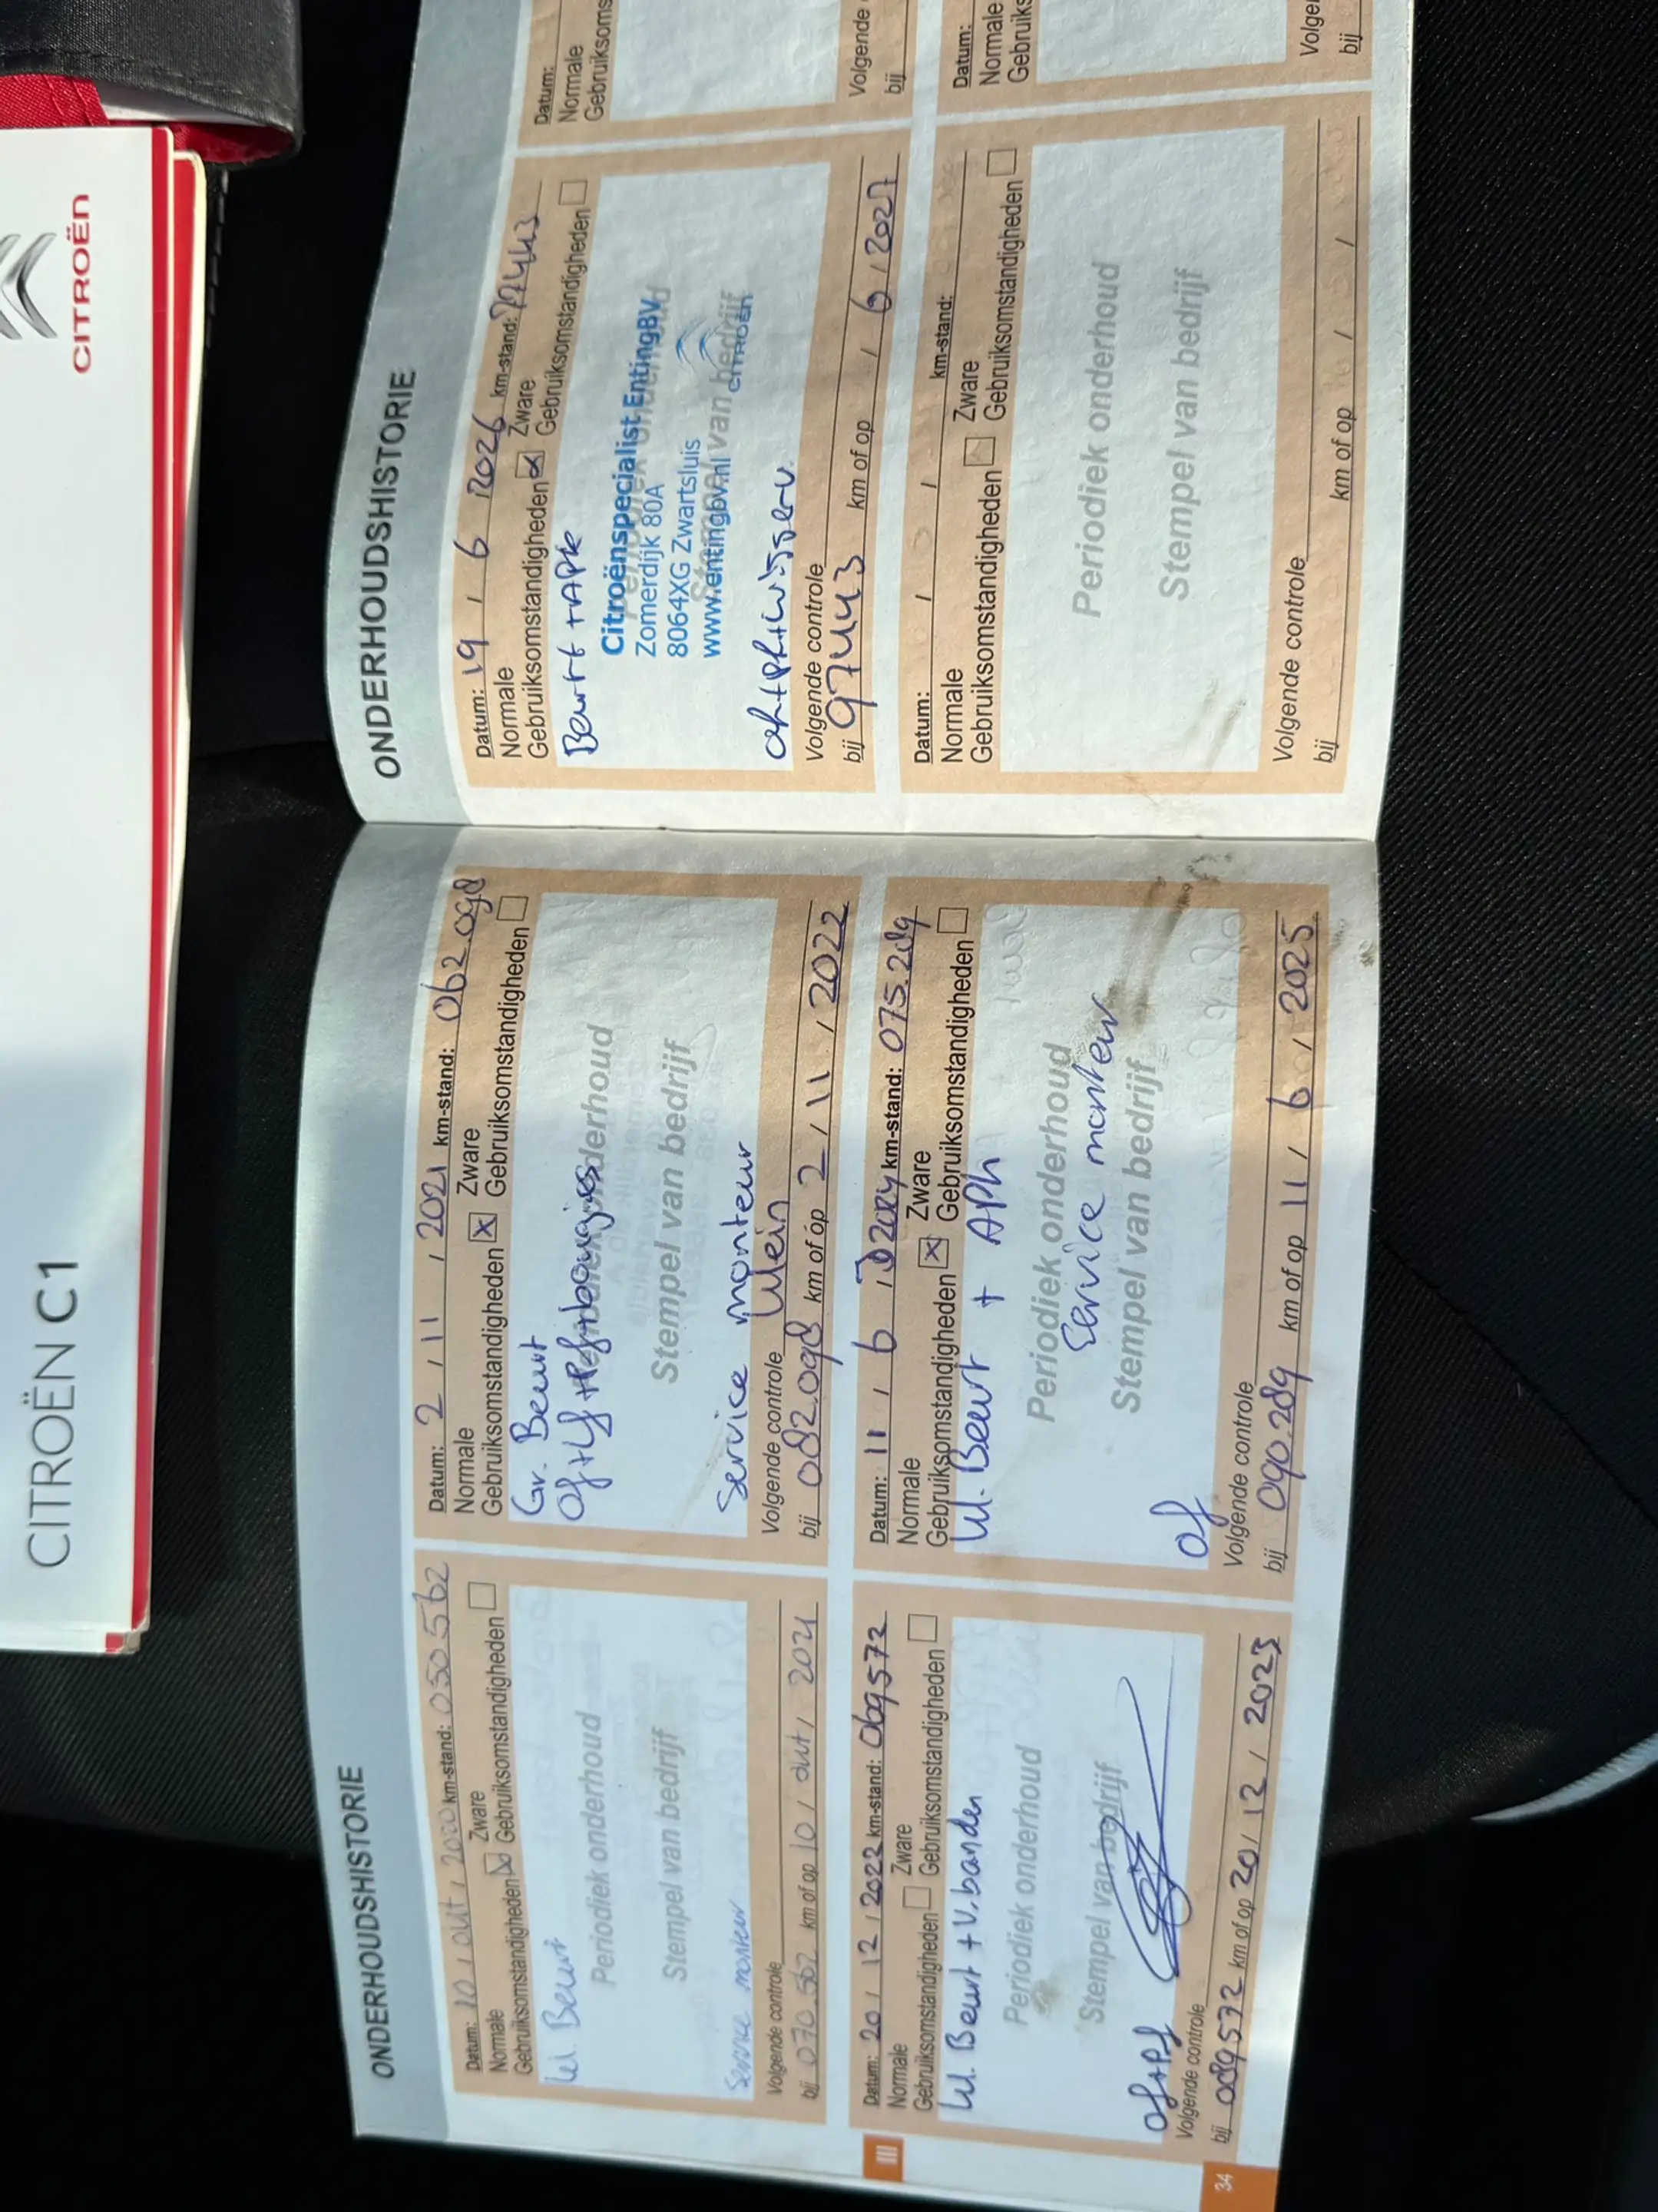 CITROËN C1
CITROËN
ONDERHOUDSHISTORIE
Datum: 10 / out / 2020 km-stand: 050562
Normale Zware
Gebruiksomstandigheden Gebruiksomstandigheden
kl. Beurt
Periodiek onderhoud
Stempel van bedrijf
Service monteur
Volgende controle
bij 070.562 km of op 10 / out / 2021
Datum: 2 / 11 / 2021 km-stand: 062.098
Normale Zware
Gebruiksomstandigheden x Gebruiksomstandigheden
Gr. Beurt
Of + Lf + Pf + bougies
Periodiek onderhoud
Stempel van bedrijf
Service monteur
Klein
Volgende controle
bij 082.098 km of op 2 / 11 / 2022
Datum: 20 / 12 / 2022 km-stand: 069572
Normale Zware
Gebruiksomstandigheden Gebruiksomstandigheden
kl. Beurt + v. banden
Periodiek onderhoud
Stempel van bedrijf
of + Pf
Volgende controle
bij 089572 km of op 20 / 12 / 2023
Datum: 11 / 6 / 2024 km-stand: 075.289
Normale Zware
Gebruiksomstandigheden x Gebruiksomstandigheden
kl. Beurt + APK
Periodiek onderhoud
Service monteur
Stempel van bedrijf
of
Volgende controle
bij 090.289 km of op 11 / 6 / 2025
III
34
ONDERHOUDSHISTORIE
Datum: 19 / 6 / 2026 km-stand: 77443
Normale Zware
Gebruiksomstandigheden x Gebruiksomstandigheden
Beurt + APK
Citroënspecialist Enting BV
Zomerdijk 80A
8064XG Zwartsluis
www.entingbv.nl
CITROËN
Stempel van bedrijf
Volgende controle
bij 97443 km of op / 6 / 2027
Datum:
Normale
Volgende
bij
Datum: / / km-stand:
Normale Zware
Gebruiksomstandigheden Gebruiksomstandigheden
Periodiek onderhoud
Stempel van bedrijf
Volgende controle
bij km of op / /
Datum:
Normale
bij